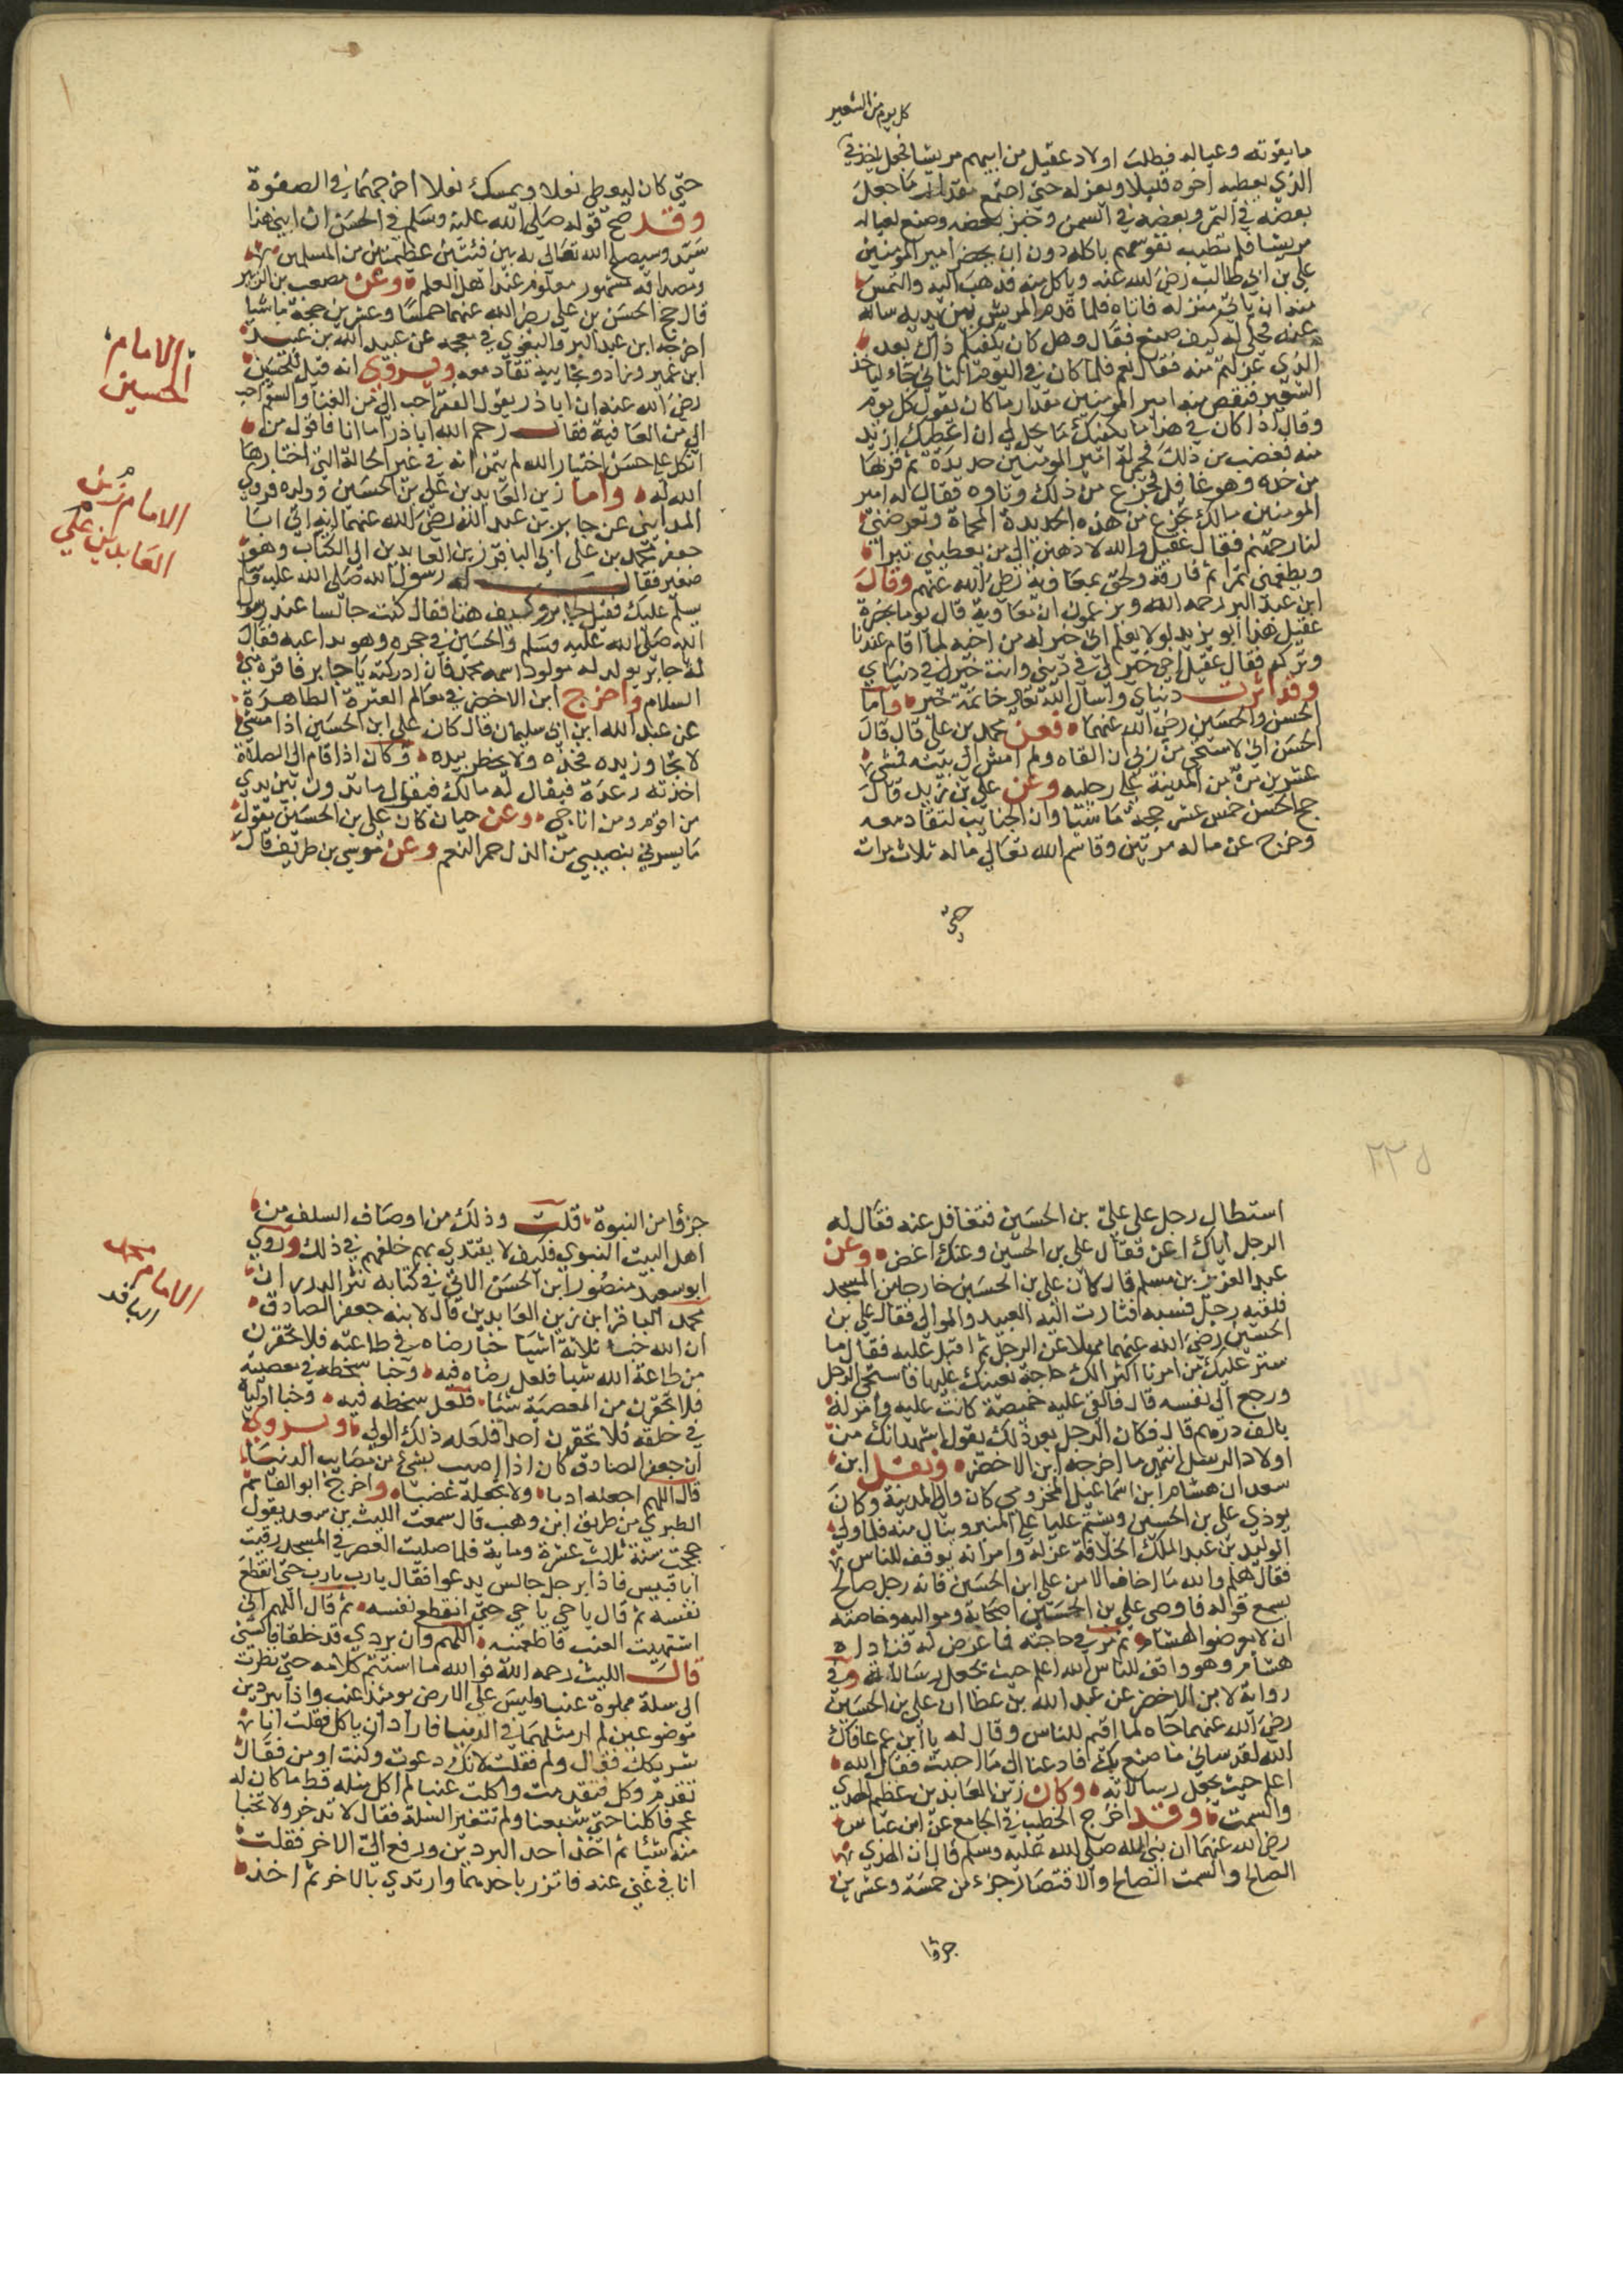 كل يوم من الشعير
ما يقوته وعياله فطلب اولاد عقيل من ابيهم مريسا فجعل ياخذ في
الذي يعطيه اخوه قليلا ويعزله حتى اجتمع مقدار ما جعل
بعضه في التمر وبعضه في السمن وخبز بعضه وصنع لعياله
مريسا فلم تطيب نفوسهم باكله دون ان يحضر امير المؤمنين
علي بن ابي طالب رضي الله عنه وياكل منه فذهب اليه والتمس
منه ان ياتي منزله فاتاه فلما قدم المريس بين يديه ساله
عنه فحكى له كيف صنع فقال وهل كان يكفيكم ذاك بعد
الذي عزلتم منه فقال نعم فلما كان في اليوم الثاني جاء لياخذ
الشعير فنقص منه امير المؤمنين مقدار ما كان يعزل كل يوم
وقال اذا كان في هذا ما يكفيك ما حل لي ان اعطيك ازيد
منه فغضب من ذلك فحمى له امير المؤمنين حديدة ثم قربها
من خده وهو غافل فجزع من ذلك وتاوه فقال له امير
المؤمنين مالك تجزع من هذه الحديدة المحماة وتعرضني
لنار جهنم فقال عقيل والله لاذهبن الى من يعطيني تبرا
ويطعمني تمرا ثم فارقه ولحق بمعاوية رضي الله عنهم وقال
ابن عبد البر رحمه الله ويزعمون ان معاوية قال يوما بحضرة
عقيل هذا ابو يزيد لولا يعلم اني خير له من اخيه لما اقام عندنا
وتركه فقال عقيل اخي خير لي في ديني وانت خير لي في دنياي
وقد اثرت دنياي واسال الله تعالى خاتمة خير واما
الحسن والحسين رضي الله عنهما فعن محمد بن علي قال قال
الحسن اني لاستحي من ربي ان القاه ولم امش الى بيته فمشى
عشرين مرة من المدينة على رجليه وعن علي بن زيد قال
حج الحسن خمس عشر حجة ماشيا وان الجنايب لتقاد معه
وخرج عن ماله مرتين وقاسم الله تعالى ماله ثلاث مرات
حتى
حتى كان ليعطي نعلا ويمسك نعلا اخرجهما في الصفوة
وقد صح قوله صلى الله عليه وسلم في الحسن ان ابني هذا
سيد وسيصلح الله تعالى به بين فئتين عظيمتين من المسلمين
ومصداقه مشهور معلوم عند اهل العلم وعن مصعب بن الزبير
قال حج الحسين بن علي رضي الله عنهما خمسا وعشرين حجة ماشيا
اخرجه ابن عبد البر والبغوي في معجمه عن عبيد الله بن عبيد
ابن عمير وزاد ونجايبه تقاد معه ويروى انه قيل للحسين
رضي الله عنه ان ابا ذر يقول الفقر احب الي من الغنا والسقم احب
الي من العافية فقال رحم الله ابا ذر اما انا فاقول من
اتكل على حسن اختيار الله لم يتمن انه في غير الحالة التي اختارها
الله له واما زين العابدين علي بن الحسين وولده فروي
المدايني عن جابر بن عبد الله رضي الله عنهما انه اتى ابا
جعفر محمد بن علي ابي الباقر زين العابدين الى الكتاب وهو
صغير فقال له رسول الله صلى الله عليه وسلم
يسلم عليك فقيل لجابر وكيف هذا فقال كنت جالسا عند رسول
الله صلى الله عليه وسلم والحسين في حجره وهو يداعبه فقال
له جابر يولد له مولود اسمه محمد فان ادركته يا جابر فاقره مني
السلام واخرج ابن الاخضر في معالم العترة الطاهرة
عن عبد الله ابن ابي سليمان قال كان علي ابن الحسين اذا مشى
لا تجاوز يده فخذه ولا يخطر بيده وكان اذا قام الى الصلاة
اخذته رعدة فيقال له مالك فيقول ما تدرون بين يدي
من اقوم ومن اناجي وعن حيان كان علي بن الحسين يقول
ما يسرني بنصيبي من الذل حمر النعم وعن موسى بن طريف قال
الامام
الحسين
الامام زين
العابدين علي
٢٣٥
استطال رجل على علي بن الحسين فتغافل عنه فقال له
الرجل اياك اعني فقال علي بن الحسين وعنك اغض وعن
عبد العزيز بن مسلم قال كان علي بن الحسين خارجا من المسجد
فلقيه رجل فسبه فثارت اليه العبيد والموالي فقال علي بن
الحسين رضي الله عنهما مهلا عن الرجل ثم اقبل عليه فقال ما
ستر عليك من امرنا اكثر الك حاجة نعينك عليها فاستحى الرجل
ورجع الى نفسه قال فالقى عليه خميصة كانت عليه وامر له
بالف درهم قال فكان الرجل بعد ذلك يقول اشهد انك من
اولاد الرسل انتهى ما اخرجه ابن الاخضر ونقل ابن
سعد ان هشام ابن اسماعيل المخزومي كان والي المدينة وكان
يوذي علي بن الحسين ويشتم عليا على المنبر وينال منه فلما ولي
الوليد بن عبد الملك الخلافة عزله وامر انه يوقف للناس
فقال هلم والله ما اخاف الا من علي ابن الحسين فانه رجل صالح
يسمع قوله فاوصى علي بن الحسين اصحابه ومواليه وخاصته
ان لا يعرضوا لهشام ثم مر في حاجته فما عرض له فناداه
هشام وهو واقف للناس الله اعلم حيث يجعل رسالاته وفي
رواية لابن الاخضر عن عبد الله بن عطا ان علي بن الحسين
رضي الله عنهما جاه لما اقيم للناس وقال له يا ابن عم عافاك
الله لقد ساني ما صنع بك فادعنا الى ما احببت فقال الله
اعلم حيث يجعل رسالاته وكان زين العابدين عظيم الهدي
والسمت وقد اخرج الخطيب في الجامع عن ابن عباس
رضي الله عنهما ان نبي الله صلى الله عليه وسلم قال ان الهدي
الصالح والسمت الصالح والاقتصاد جزء من خمسة وعشرين
جزؤا
جزؤا من النبوة قلت وذلك من اوصاف السلف من
اهل البيت النبوي فكيف لا يقتدي بهم خلفهم في ذلك وروي
ابو سعيد منصور ابن الحسن الاتي في كتابه نثر الدرر ان
محمد الباقر ابن زين العابدين قال لابنه جعفر الصادق
ان الله خبا ثلاثة اشيا خبا رضاه في طاعته فلا تحقرن
من طاعة الله شيا فلعل رضاه فيه وخبا سخطه في معصيته
فلا تحقرن من المعصية شيا فلعل سخطه فيه وخبا اوليا
في خلقه فلا تحقرن احدا فلعله ذلك الولي ويروى
ان جعفر الصادق كان اذا اصيب بشيء من مصايب الدنيا
قال اللهم اجعله ادبا ولا تجعله غضبا واخرج ابو القاسم
الطبري من طريق ابن وهب قال سمعت الليث بن سعد يقول
حججت سنة ثلاث عشرة وماية فلما صليت العصر في المسجد رقيت
ابا قبيس فاذا برجل جالس يدعوا فقال يا رب يا رب حتى انقطع
نفسه ثم قال يا حي يا حي حتى انقطع نفسه ثم قال اللهم اني
اشتهيت العنب فاطعمنيه اللهم وان بردي قد خلقا فاكسني
قال الليث رحمه الله فوالله ما استتم كلامه حتى نظرت
الى سلة مملوة عنبا وليس على الارض يومئذ عنب واذا ببردين
موضوعين لم ار مثلهما في الدنيا فاراد ان ياكل فقلت انا
شريكك فقال ولم فقلت لانك دعوت وكنت اومن فقال
تقدم وكل فتقدمت واكلت عنبا لم اكل مثله قط ما كان له
عجم فاكلنا حتى شبعنا ولم تتغير السلة فقال لا تدخر ولا تخبا
منه شيئا ثم اخذ احد البردين ودفع الي الاخر فقلت
انا في غنى عنه فاتزر باحدهما وارتدي بالاخر ثم اخذ
الامام محمد
الباقر